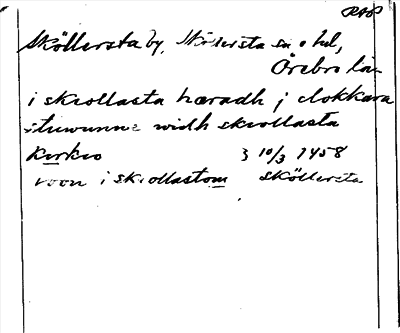 RAP
Sköllersta by, Sköllersta sn o hd,
Örebro län
i skiollasta hæradh j clokkara
stuwunne widh skiollasta
kirkio 3 10/3 1458
voon i skiollastom Sköllersta